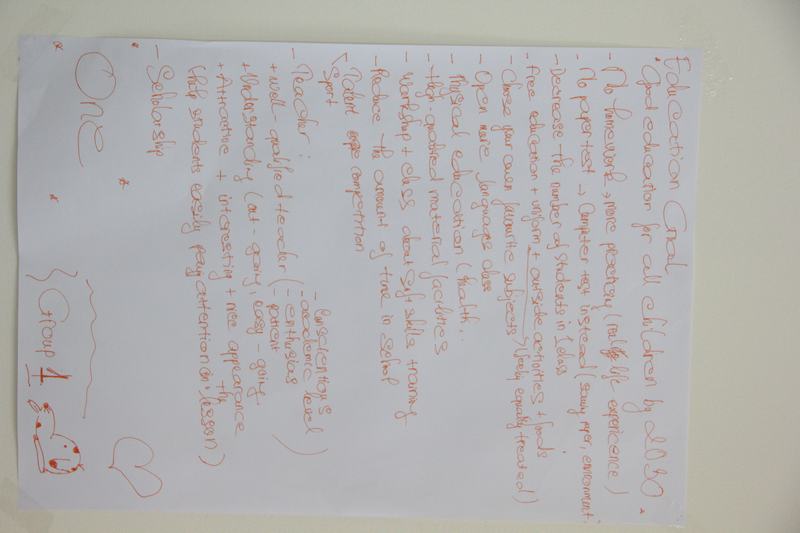 Education Goal
Good education for all children by 2030
- No homework → more practising (real life experience)
- No paper test → Computer test instead (saving paper, environment.
- Decrease the number of students in 1 class
- Free education + uniform + outside activities + foods
- Choose your own favourite subjects > (Feeling equally treated)
- Open more languages class
- Physical education (health..
- High qualified material facilities
- Workshop + class about soft skills training
- Reduce the amount of time in school
Talent competition
sport
- Teacher:
+ Well-qualified teacher (- enthusias
- patient
- academic level
- conscientious )
+ Understanding (out-going, easy-going
+ Attractive + interesting + nice appearance
(help students easily pay attention on the lesson)
- Scholarship
One
Group 1